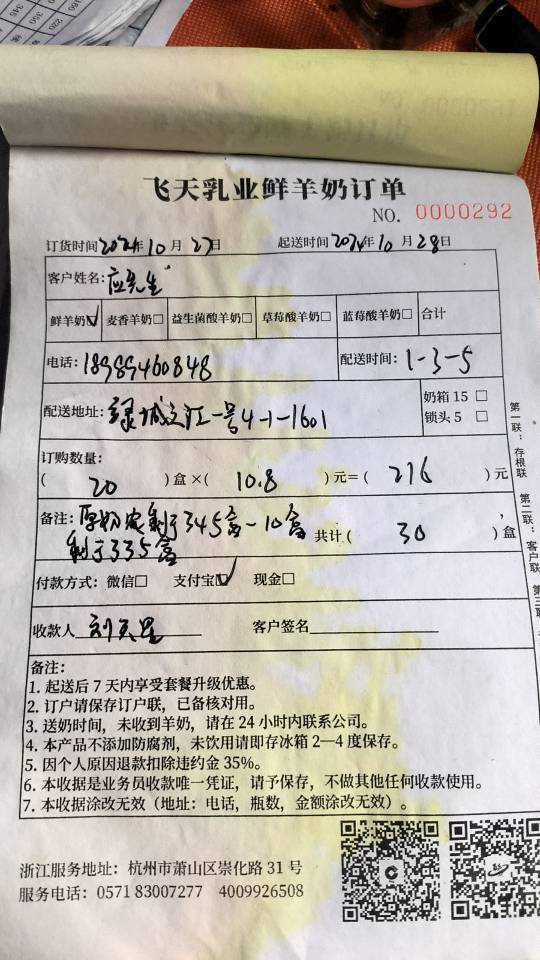 飞天乳业鲜羊奶订单
NO. 0000292
订货时间2024年10月27日 起送时间2024年10月28日
客户姓名：应先生
鲜羊奶☑ 麦香羊奶□ 益生菌酸羊奶□ 草莓酸羊奶□ 蓝莓酸羊奶□ 合计
电话：18989460848 配送时间：1-3-5
配送地址：绿城之江一号4-1-1601 奶箱 15 □
锁头 5 □
订购数量：
( 20 ) 盒 ×( 10.8 ) 元=( 216 ) 元
备注：原奶客剩于345盒-10盒
剩于335盒 共计( 30 ) 盒
付款方式：微信□ 支付宝☑ 现金□
收款人 刘天星 客户签名
备注：
1. 起送后 7 天内享受套餐升级优惠。
2. 订户请保存订户联，已备核对用。
3. 送奶时间，未收到羊奶，请在 24 小时内联系公司。
4. 本产品不添加防腐剂，未饮用请即存冰箱 2—4 度保存。
5. 因个人原因退款扣除违约金 35%。
6. 本收据是业务员收款唯一凭证，请予保存，不做其他任何收款使用。
7. 本收据涂改无效（地址：电话，瓶数，金额涂改无效）。
浙江服务地址：杭州市萧山区崇化路 31 号
服务电话：0571 83007277 4009926508
第一联：存根联 第二联：客户联 第三联